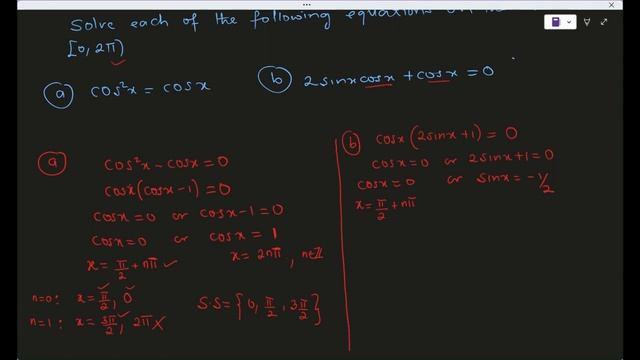 Solve each of the following equations on
[0, 2π)
(a) cos²x = cosx
(b) 2sinxcosx + cosx = 0
(a)
cos²x - cosx = 0
cosx(cosx - 1) = 0
cosx = 0 or cosx - 1 = 0
cosx = 0 or cosx = 1
x = π/2 + nπ ✓ x = 2nπ, n∈ℤ
n=0: x = π/2, 0
n=1: x = 3π/2, 2π X
S.S = {0, π/2, 3π/2}
(b) cosx(2sinx + 1) = 0
cosx = 0 or 2sinx + 1 = 0
cosx = 0 or sinx = -1/2
x = π/2 + nπ